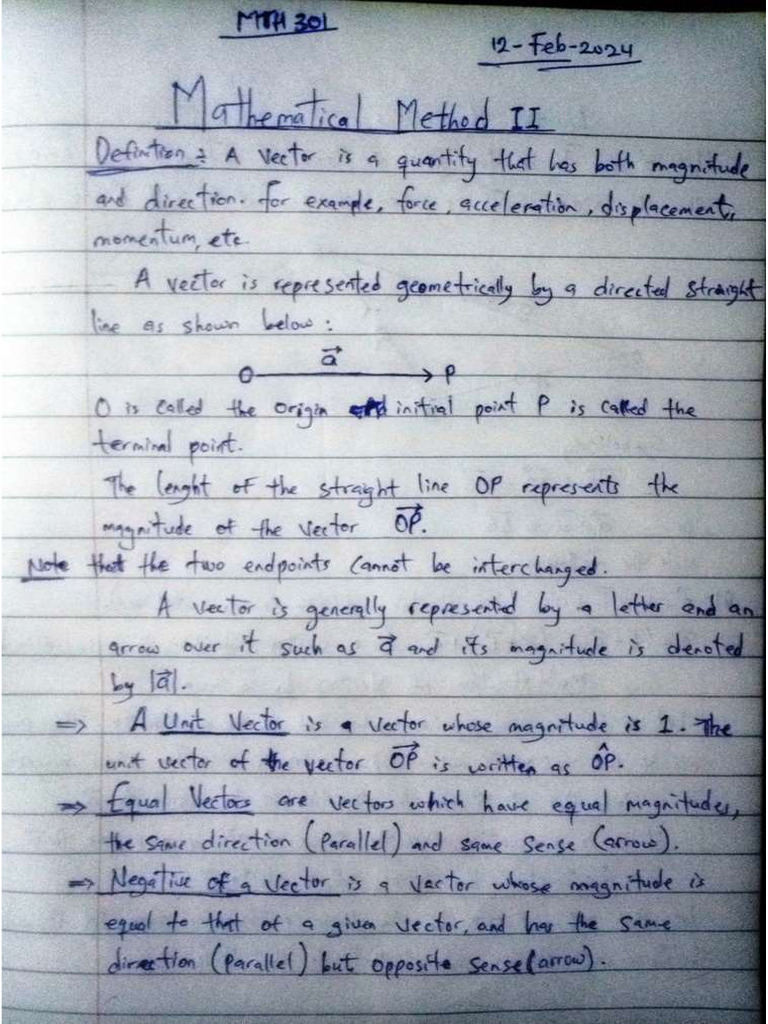 MTH 301
12-Feb-2024
Mathematical Method II
Definition: A vector is a quantity that has both magnitude
and direction. For example, force, acceleration, displacement,
momentum, etc.
A vector is represented geometrically by a directed straight
line as shown below:
a⃗
O P
O is called the origin and initial point P is called the
terminal point.
The lenght of the straight line OP represents the
magnitude of the vector OP⃗.
Note that the two endpoints cannot be interchanged.
A vector is generally represented by a letter and an
arrow over it such as a⃗ and its magnitude is denoted
by |a⃗|.
⇒ A Unit Vector is a vector whose magnitude is 1. The
unit vector of the vector OP⃗ is written as OP̂.
⇒ Equal Vectors are vectors which have equal magnitudes,
the same direction (Parallel) and same sense (arrow).
⇒ Negative of a Vector is a vector whose magnitude is
equal to that of a given vector, and has the same
direction (parallel) but opposite sense (arrow).